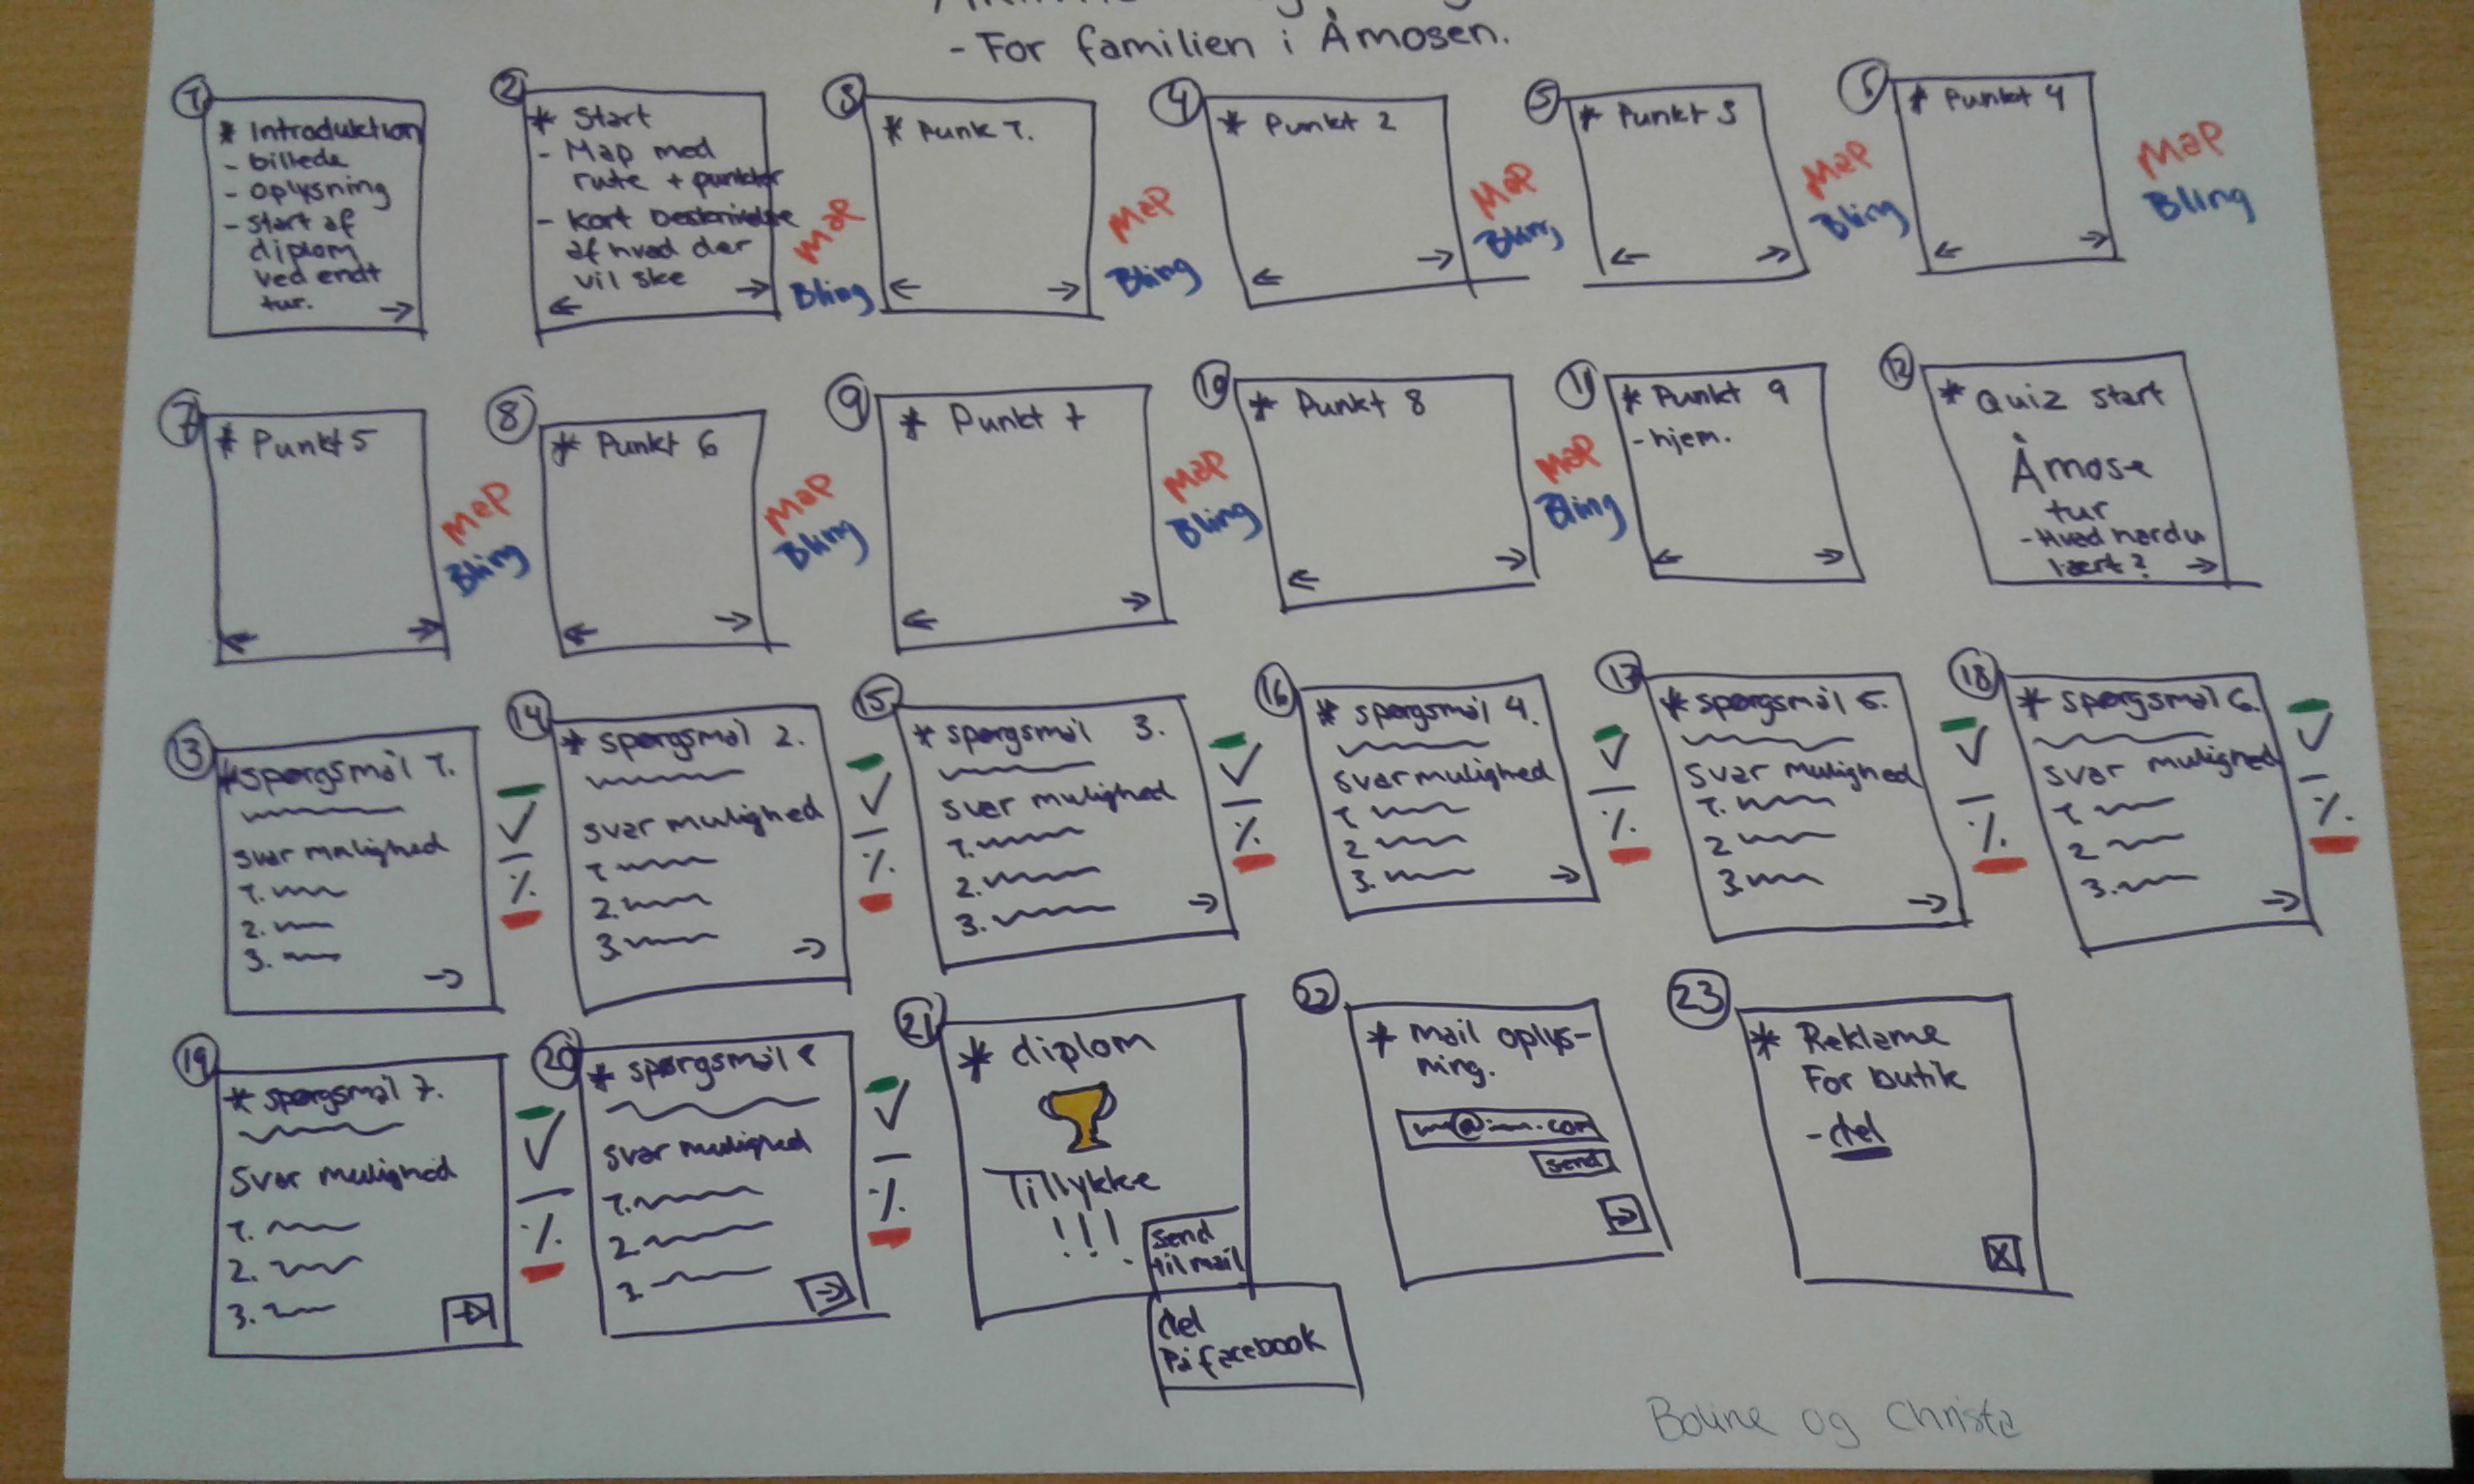 - For familien i Åmosen.
1
* Introduktion
- billede
- oplysning
- Start af
diplom
ved endt
tur.
→
2
* Start
- Map med
rute + punkter
- Kort beskrivelse
af hvad der
vil ske
← →
Map
Bling
3
* Punkt 1.
← →
Map
Bling
4
* Punkt 2
← →
Map
Bling
5
* Punkt 3
← →
Map
Bling
6
* Punkt 4
← →
Map
Bling
7
* Punkt 5
← →
Map
Bling
8
* Punkt 6
← →
Map
Bling
9
* Punkt 7
← →
Map
Bling
10
* Punkt 8
← →
Map
Bling
11
* Punkt 9
- hjem.
← →
12
* Quiz start
Åmose
tur
- Hvad har du
lært?
→
13
* spørgsmål 1.
svar mulighed
1.
2.
3.
→
✓
%
14
* spørgsmål 2.
svar mulighed
1.
2.
3.
→
✓
%
15
* spørgsmål 3.
svar mulighed
1.
2.
3.
→
✓
%
16
* spørgsmål 4.
svar mulighed
1
2
3.
→
✓
%
17
* spørgsmål 5.
svar mulighed
1.
2
3
→
✓
%
18
* spørgsmål 6.
svar mulighed
1
2
3.
→
✓
%
19
* spørgsmål 7.
Svar mulighed
1.
2.
3.
→
✓
%
20
* spørgsmål 8
svar mulighed
1.
2
3
→
✓
%
21
* diplom
Tillykke
!!!
send
til mail
del
På facebook
22
* mail oplys-
ning.
@ .com
send
→
23
* Reklame
For butik
- del
X
Boline og Christa